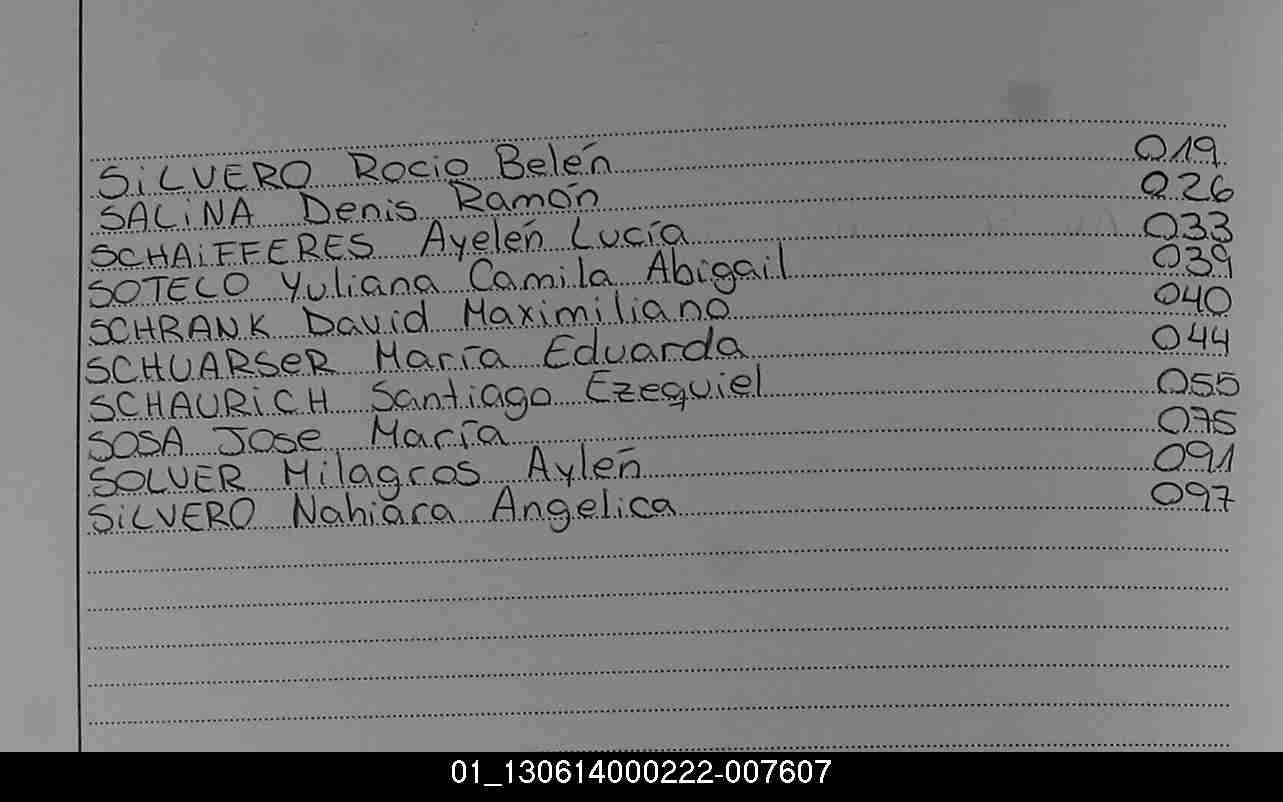 SiLVERO Rocio Belén 019
SALiNA Denis Ramón 026
SCHAiFFERES Ayelén Lucía 033
SOTELO Yuliana Camila Abigail 039
SCHRANK David Maximiliano 040
SCHUARSER María Eduarda 044
SCHAURiCH Santiago Ezequiel 055
SOSA Jose María 075
SOLVER Milagros Aylén 091
SiLVERO Nahiara Angelica 097
01_130614000222-007607